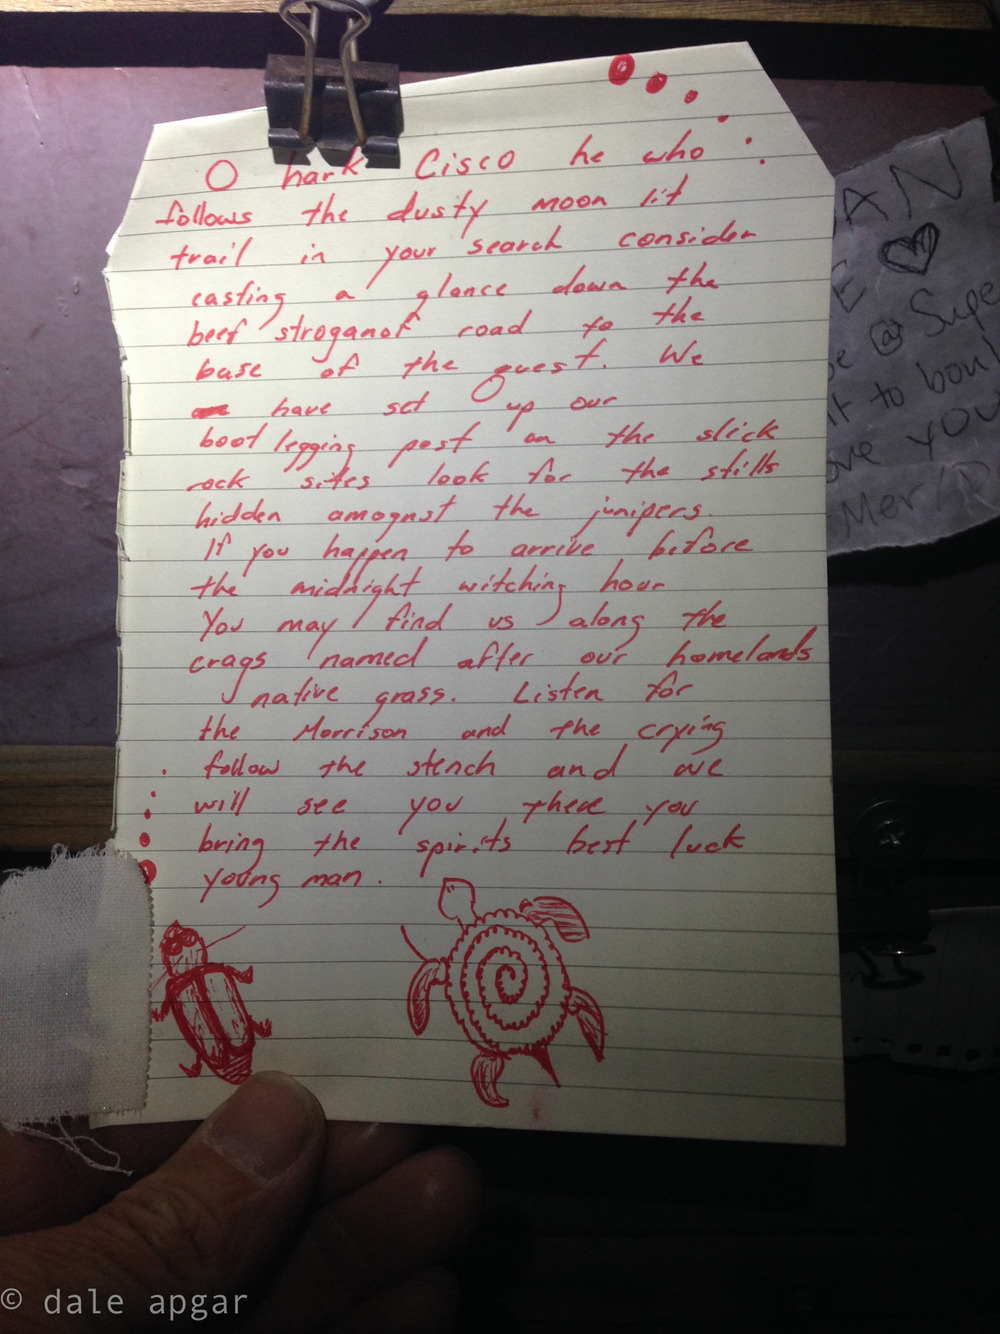 O hark Cisco he who
follows the dusty moon lit
trail in your search consider
casting a glance down the
beef stroganof road to the
base of the quest. We
have set up our
boot legging post on the slick
rock sites look for the stills
hidden amognst the junipers.
If you happen to arrive before
the midnight witching hour
You may find us along the
crags named after our homelands
native grass. Listen for
the Morrison and the crying
follow the stench and we
will see you there you
bring the spirits best luck
young man.
AN
E
@ Supe
it to bou
ove you
Mer
© dale apgar